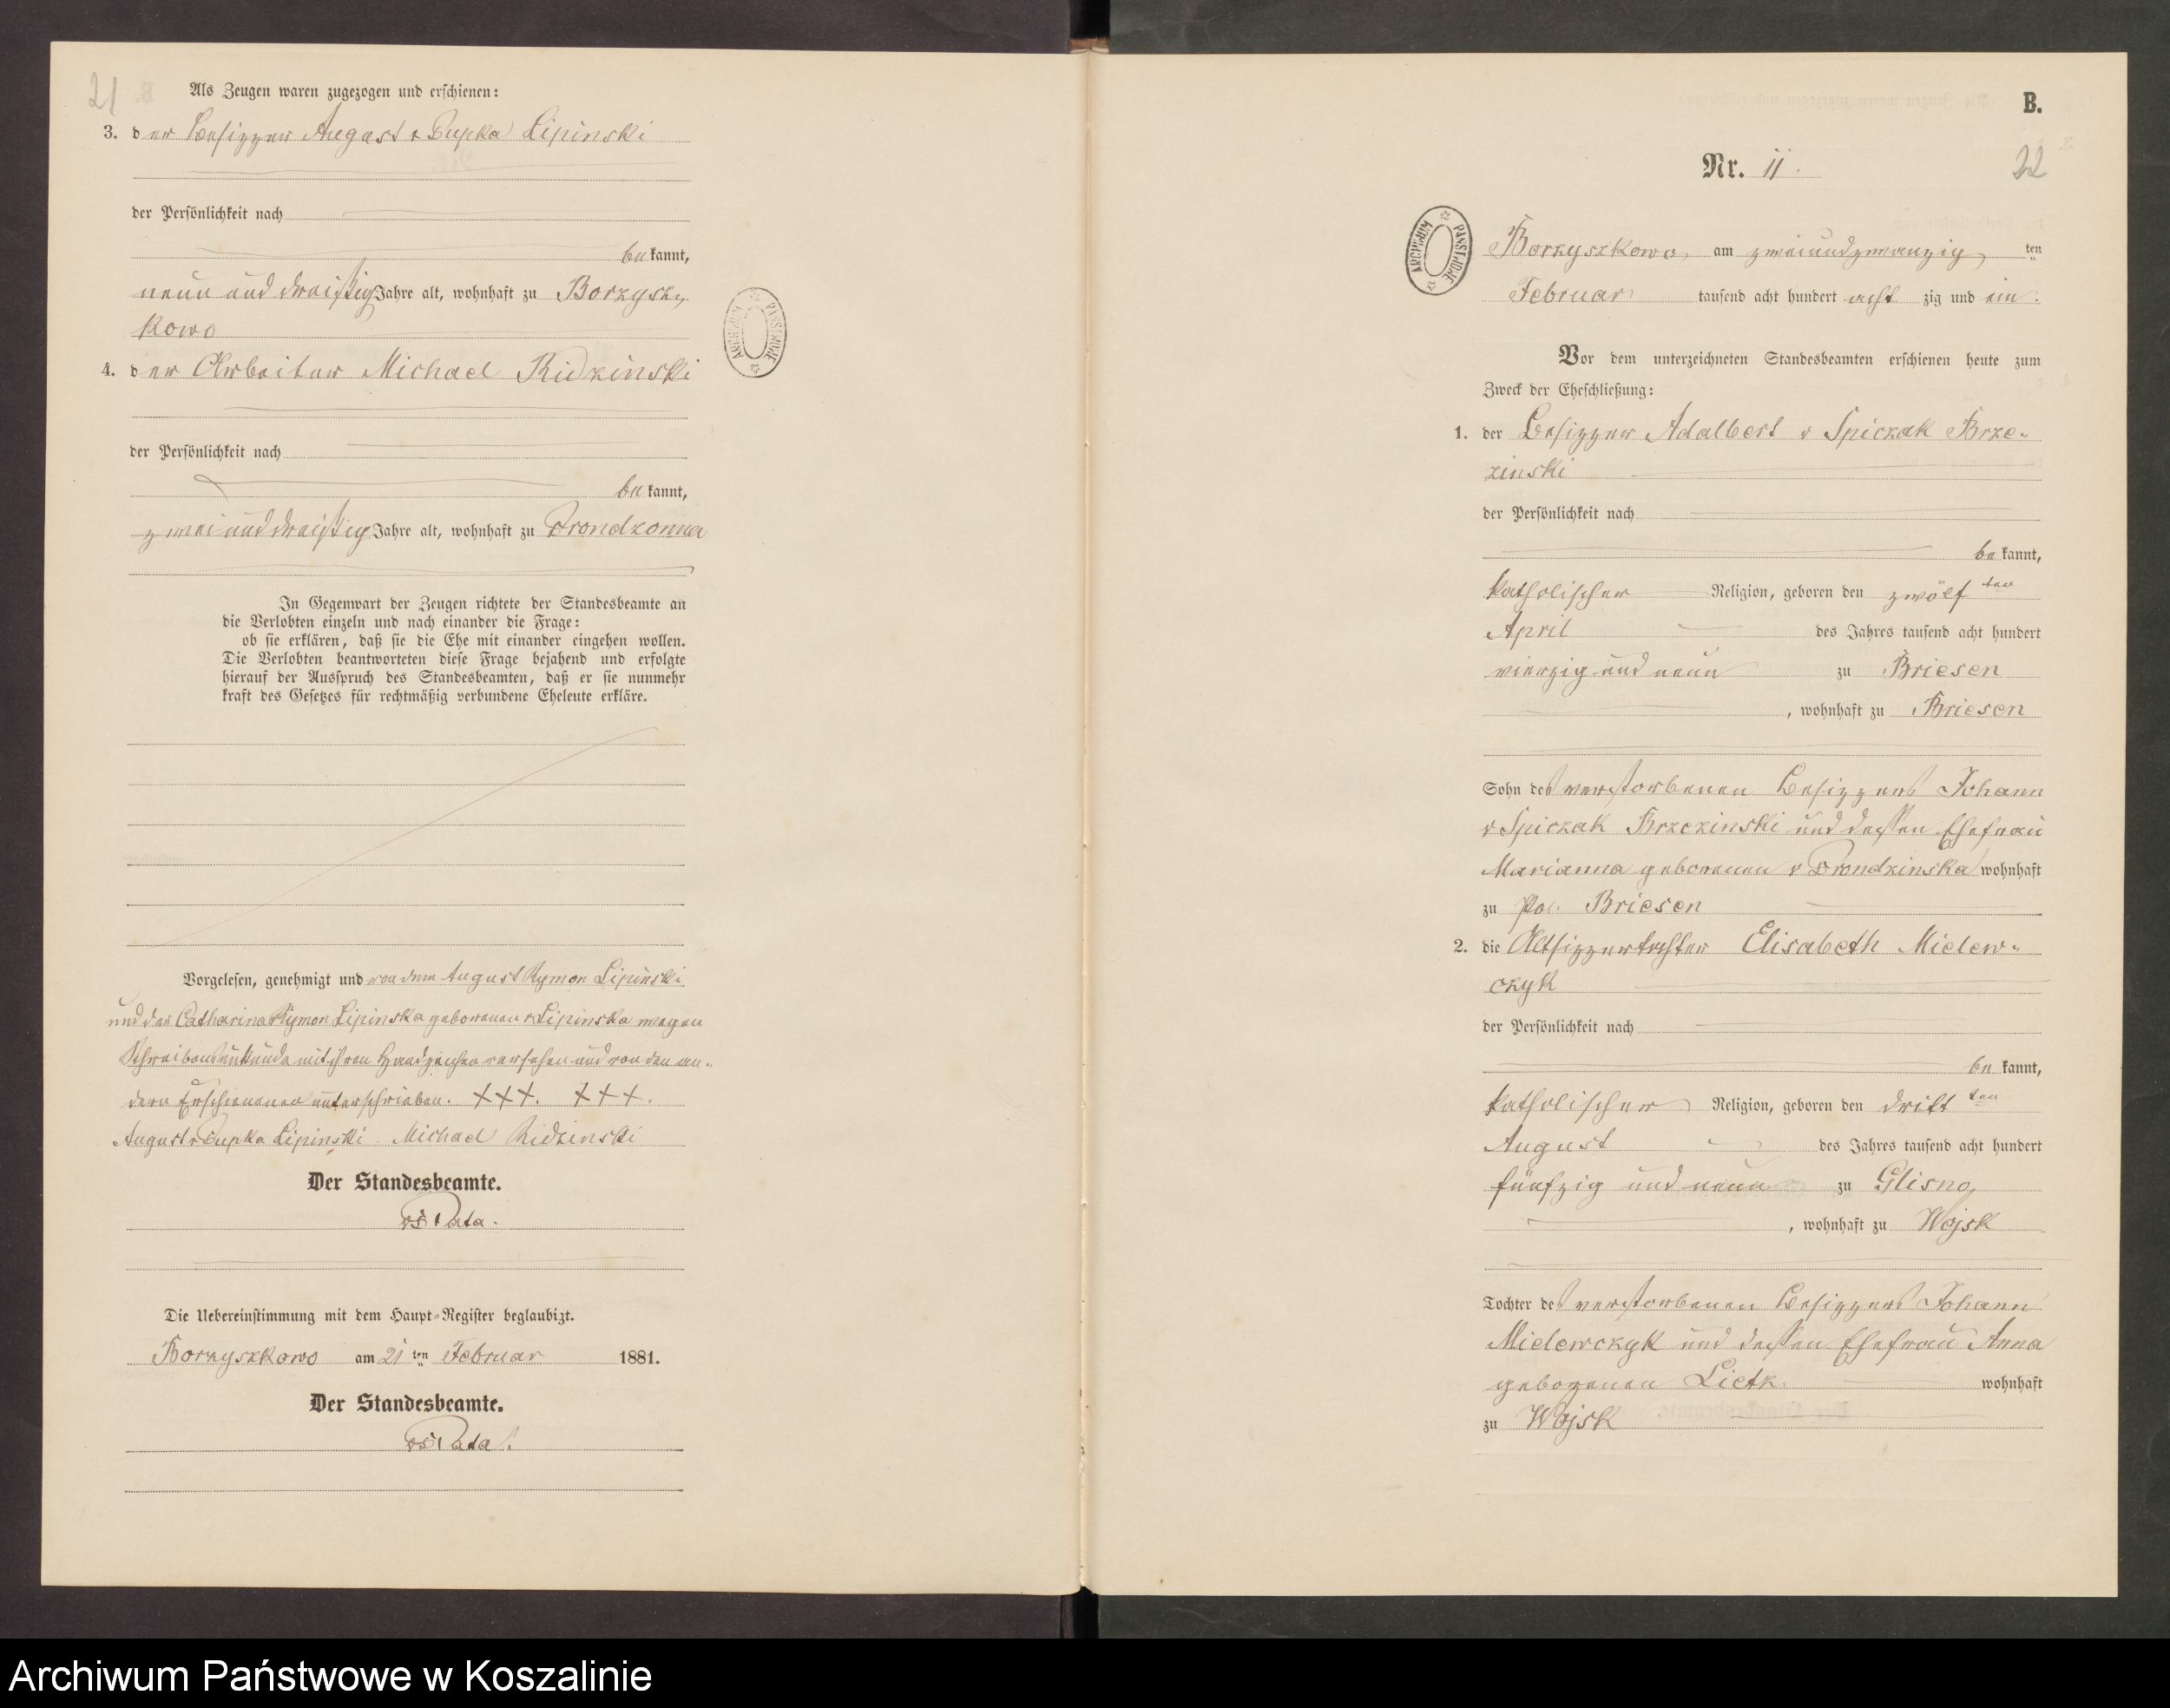 21
Als Zeugen waren zugezogen und erschienen:
3. der Besitzer August v Pupka Lipinski
der Persönlichkeit nach
bekannt,
neun und dreißig Jahre alt, wohnhaft zu Borzysz„
kowo
4. der Arbeiter Michael Ridzinski
der Persönlichkeit nach
bekannt,
zwei und dreißig Jahre alt, wohnhaft zu Prondzonna
In Gegenwart der Zeugen richtete der Standesbeamte an
die Verlobten einzeln und nach einander die Frage:
ob sie erklären, daß sie die Ehe mit einander eingehen wollen.
Die Verlobten beantworteten diese Frage bejahend und erfolgte
hierauf der Ausspruch des Standesbeamten, daß er sie nunmehr
kraft des Gesetzes für rechtmäßig verbundene Eheleute erkläre.
Vorgelesen, genehmigt und von dem August Rymon Lipinski
und der Catharina Rymon Lipinska geborenen v Lipinska wegen
Schreibensunkunde mit ihren Handzeichen versehen und von den an„
dern Erschienenen unterschrieben. XXX. XXX.
August v Pupka Lipinski Michael Ridzinski
Der Standesbeamte.
Die Uebereinstimmung mit dem Haupt-Register beglaubigt.
Borzyszkowo am 21 ten Februar 1881.
Der Standesbeamte.
B.
Nr. 11.
22
ARCHIWUM PAŃSTWOWE
Borzyszkowo, am zweiundzwanzig ten
Februar tausend acht hundert achtzig und ein.
Vor dem unterzeichneten Standesbeamten erschienen heute zum
Zweck der Eheschließung:
1. der Besitzer Adalbert v Spiczak Brze„
zinski
der Persönlichkeit nach
bekannt,
katholischer Religion, geboren den zwölf ten
April des Jahres tausend acht hundert
vierzig und neun zu Briesen
, wohnhaft zu Briesen
Sohn des verstorbenen Besitzers Johann
v Spiczak Brzezinski und dessen Ehefrau
Marianna geborenen v Prondzinska wohnhaft
zu Briesen
2. die Altsitzertochter Elisabeth Mielew„
czyk
der Persönlichkeit nach
bekannt,
katholischer Religion, geboren den dritt ten
August des Jahres tausend acht hundert
fünfzig und neun zu Glisno,
, wohnhaft zu Wojsk
Tochter des verstorbenen Besitzers Johann
Mielewczyk und dessen Ehefrau Anna
geborenen Lietz wohnhaft
zu Wojsk
ARCHIWUM PAŃSTWOWE
Archiwum Państwowe w Koszalinie